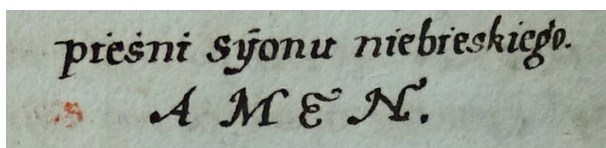 pieśni sÿonu niebieskiego.
AMEN.